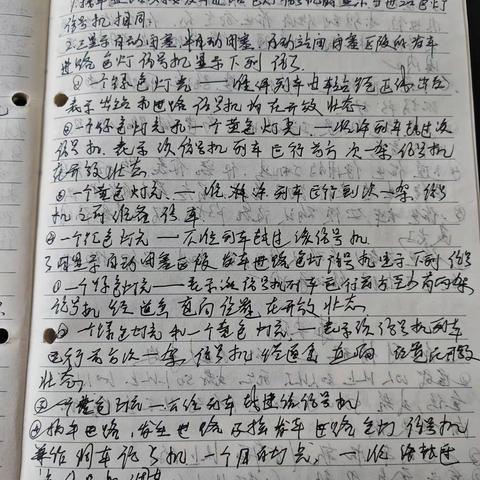 信号机相同。
2.三显示自动闭塞,半自动闭塞,自动站间闭塞区段的发车
进路色灯信号机显示下列信号
①一个绿色灯光——准许列车由车站经正线出发
表示出站和进路信号机均在开放状态
②一个绿色灯光和一个黄色灯光——准许列车越过次
信号机,表示该信号机列车运行前方次一架信号机
在开放状态
③一个黄色灯光——准许列车运行到次一架信号
机之前准备停车
④一个红色灯光——不准列车越过该信号机
3.四显示自动闭塞区段发车进路色灯信号机显示下列信号
①一个绿色灯光——表示该信号机列车运行前方至少有两架
信号机经道岔直向位置在开放状态
②一个绿色灯光和一个黄色灯光——表示该信号机列车
运行前方次一架信号机经道岔直向位置在开放
状态
一个色灯光——不准列车越过信号机
④接车进路,发车进路及接发车进路色灯信号机
兼作调车信号机一个月白灯光,——准许越过